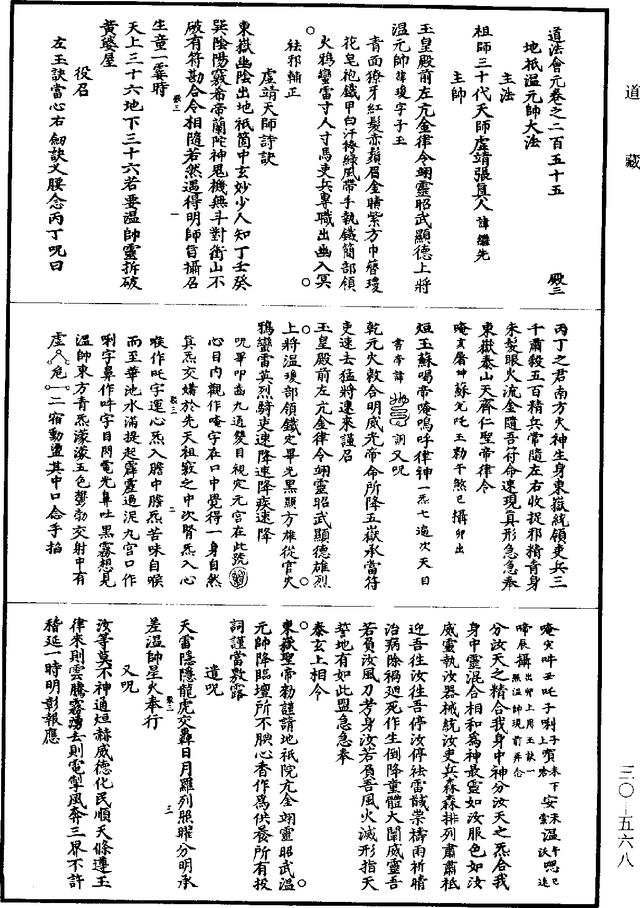 道藏
道法會元卷之二百五十五 殿三
地祇溫元帥大法
主法
祖師三十代天師虛靖張真人諱繼先
主帥
玉皇殿前左亢金律令翊靈昭武顯德上將
溫元帥諱瓊字子玉
青面獠牙紅髮赤鬚眉金睛紫方巾簪瓊
花皂袍鐵甲白汗袴綠風帶手執鐵簡部領
火鴉蠻雷寸人寸馬吏兵專職出幽入冥
祛邪輔正
虛靖天師詩訣
東嶽幽陰出地祇箇中玄妙少人知丁壬癸
巽陰陽竅希帝蘭陀神鬼機無斗對衝山不
破有符勘合令相隨若然遇得明師旨攝召
生童一霎時
天上三十六地下三十六若要溫帥靈拆破
黃婆屋
役召
左玉訣當心右劍訣叉腰念丙丁呪曰
丙丁之君南方火神生身東嶽統領吏兵三
千肅殺五百精兵常隨左右收捉邪精青身
朱髮眼火流金隨吾符命速現真形急急奉
東嶽泰山天齊仁聖帝律令
唵寅屠坤蘇兄吒玉勒午煞巳攝卯出
烜玉蘇喝帝唵嗚呼律神一炁七遍次天目
書帝諱 詞又呪
乾元火敕合明威光帝命所降五嶽承當符
吏速去猛將速來謹召
玉皇殿前左亢金律令翊靈昭武顯德雄烈
上將溫瓊部領鐵定畢光黑顯方雄從官火
鴉蠻雷英烈騎吏速降速降疾速降
呪畢叩齒九通雙目視定元宮在此號
心目內觀作唵字在口中覺得一身自然
真炁交媾於先天祖竅之中次腎炁入心
喉作吒字運心炁入膽中膽炁苦味自喉
而至華池水滿提起霹靂過泥九宮口作
唎字鼻作吽字目閃電光鼻吐黑霧想見
溫帥東方青炁濛濛五色鬱勃交射中有
虛危二宿動盪其中口念手掐
唵寅吽丑吒子唎子上噴亥下安未堂溫午訣嗯巳遶
啼辰攝出卯上用玉訣一照溫帥現前弄念
分汝天之精合我身中神分汝天之炁合我
身中靈混合相和為神最靈如汝服色如汝
威靈執汝器械統汝吏兵森森排列肅肅祗
迎吾往汝往吾停汝停祛雷馘祟禱雨祈晴
治病除禍迎死作生倒降童體大闡威靈吾
若負汝風刀考身汝若負吾風火滅形指天
誓地有如此盟急急奉
泰玄上相令
東嶽聖帝勅謹請地祇院亢金翊靈昭武溫
元帥降臨壇所不腆心香作為供養所有投
詞謹當敷露
遣呪
天雷隱隱龍虎交轟日月羅列照曜分明承
差溫帥星火奉行
又呪
汝等莫不神通烜赫威德化民順天條遵玉
律來則雲騰霧湧去則電掣風奔三界不許
稽延一時明彰報應
三〇—五六八